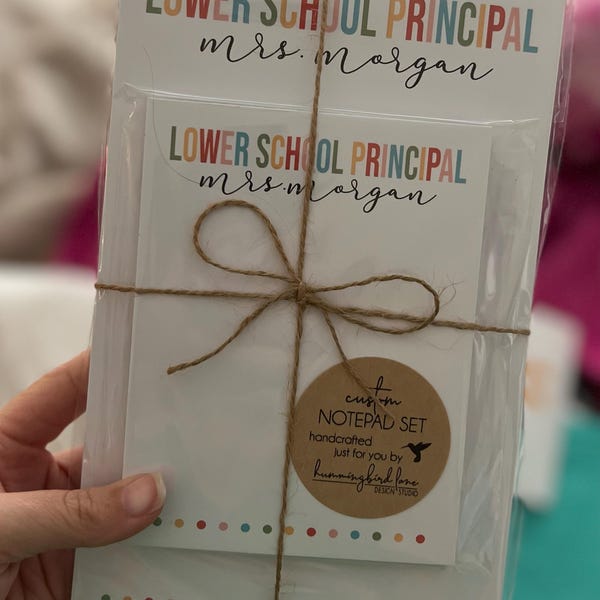 LOWER SCHOOL PRINCIPAL
mrs. morgan
LOWER SCHOOL PRINCIPAL
mrs. morgan
custom
NOTEPAD SET
handcrafted
just for you by
hummingbird lane
DESIGN STUDIO